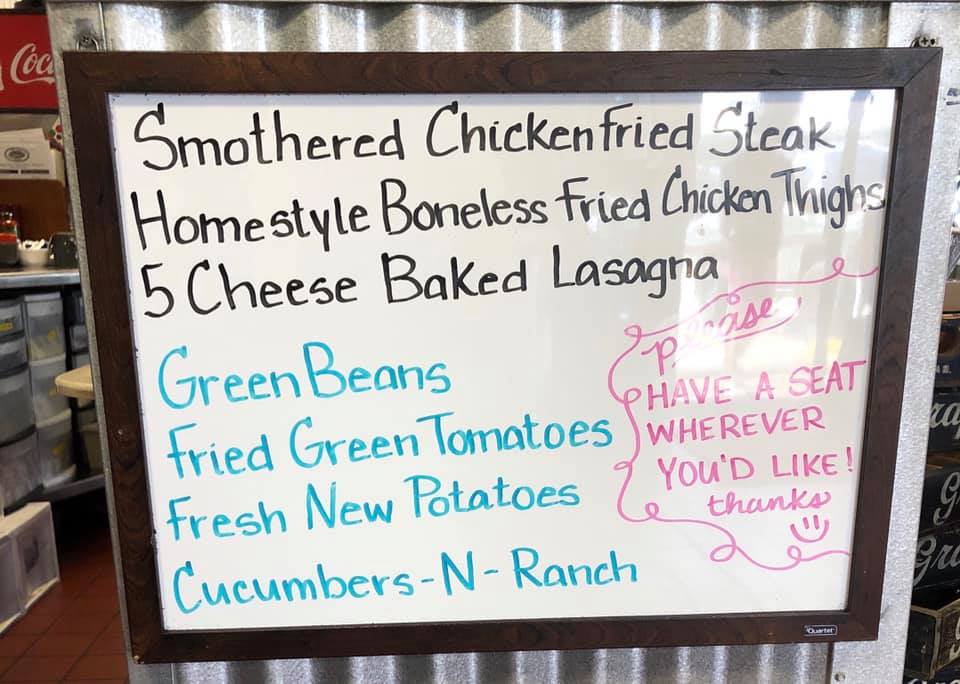 Smothered Chicken fried Steak
Homestyle Boneless fried Chicken Thighs
5 Cheese Baked Lasagna
Green Beans
fried Green Tomatoes
fresh New Potatoes
Cucumbers-N-Ranch
please
HAVE A SEAT
WHEREVER
YOU'D LIKE!
thanks
Quartet